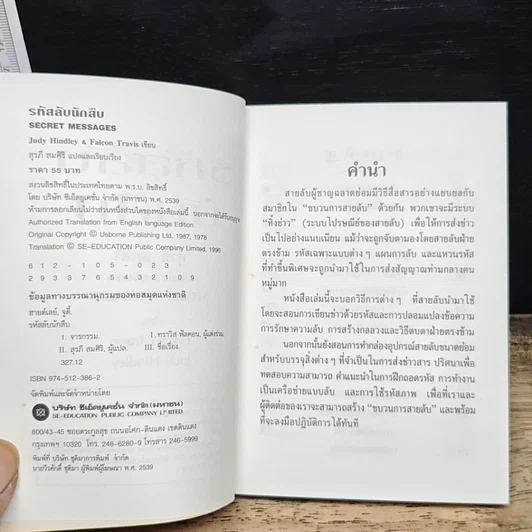 รหัสลับนักสืบ
SECRET MESSAGES
Judy Hindley & Falcon Travis เขียน
สุรภี สมศิริ แปลและเรียบเรียง
ราคา 55 บาท
สงวนลิขสิทธิ์ในประเทศไทยตาม พ.ร.บ. ลิขสิทธิ์
โดย บริษัท ซีเอ็ดยูเคชั่น จำกัด (มหาชน) พ.ศ. 2539
ห้ามการลอกเลียนไม่ว่าส่วนหนึ่งส่วนใดของหนังสือเล่มนี้ นอกจากจะได้รับอนุญาต
Authorized Translation from English language Edition
Original Copyright © Usborne Publishing Ltd. 1987, 1978
Translation © SE-EDUCATION Public Company Limited, 1996
612-105-023
2933765432109
ข้อมูลทางบรรณานุกรมของหอสมุดแห่งชาติ
ฮายด์เลย์, จูดี้.
รหัสลับนักสืบ
1. จารกรรม. I. ทราวิส ฟัลคอน, ผู้แต่งร่วม.
II. สุรภี สมศิริ, ผู้แปล. III. ชื่อเรื่อง.
327.12
ISBN 974-512-386-2
จัดพิมพ์และจัดจำหน่ายโดย
บริษัท ซีเอ็ดยูเคชั่น จำกัด (มหาชน)
SE-EDUCATION PUBLIC COMPANY LIMITED
800/43-45 ซอยตระกูลสุข ถนนอโศก-ดินแดง เขตดินแดง
กรุงเทพฯ 10320 โทร. 246-6280-9 โทรสาร 246-5999
พิมพ์ที่ บริษัท ชุติมาการพิมพ์ จำกัด
นายวีรศักดิ์ ชุติมา ผู้พิมพ์ผู้โฆษณา พ.ศ. 2539
คำนำ
สายลับผู้ชาญฉลาดย่อมมีวิธีสื่อสารอย่างแยบยลกับ
สมาชิกใน "ขบวนการสายลับ" ด้วยกัน พวกเขาจะมีระบบ
"ทิ้งข่าว" (ระบบไปรษณีย์ของสายลับ) เพื่อให้การส่งข่าว
เป็นไปอย่างแนบเนียน แม้ว่าจะถูกจับตามองโดยสายลับฝ่าย
ตรงข้าม รหัสเฉพาะแบบต่าง ๆ แผนการลับ และแหวนรหัส
ที่ทำขึ้นพิเศษจะถูกนำมาใช้ในการส่งสัญญาณท่ามกลางคน
หมู่มาก
หนังสือเล่มนี้จะบอกวิธีการต่าง ๆ ที่สายลับนำมาใช้
โดยจะสอนการเขียนข่าวด้วยรหัสและการปลอมแปลงข้อความ
การรักษาความลับ การสร้างกลลวงและวิธีตบตาฝ่ายตรงข้าม
นอกจากนั้นยังสอนการทำกล่องอุปกรณ์สายลับขนาดย่อม
สำหรับบรรจุสิ่งต่าง ๆ ที่จำเป็นในการส่งข่าวสาร ปริศนาเพื่อ
ทดสอบความสามารถ คำแนะนำในการฝึกถอดรหัส การทำงาน
เป็นเครือข่ายแบบลับ และการใช้รหัสภาพ เพื่อที่เราและ
ผู้ติดต่อของเราจะสามารถสร้าง "ขบวนการสายลับ" และพร้อม
ที่จะลงมือปฏิบัติการได้ทันที